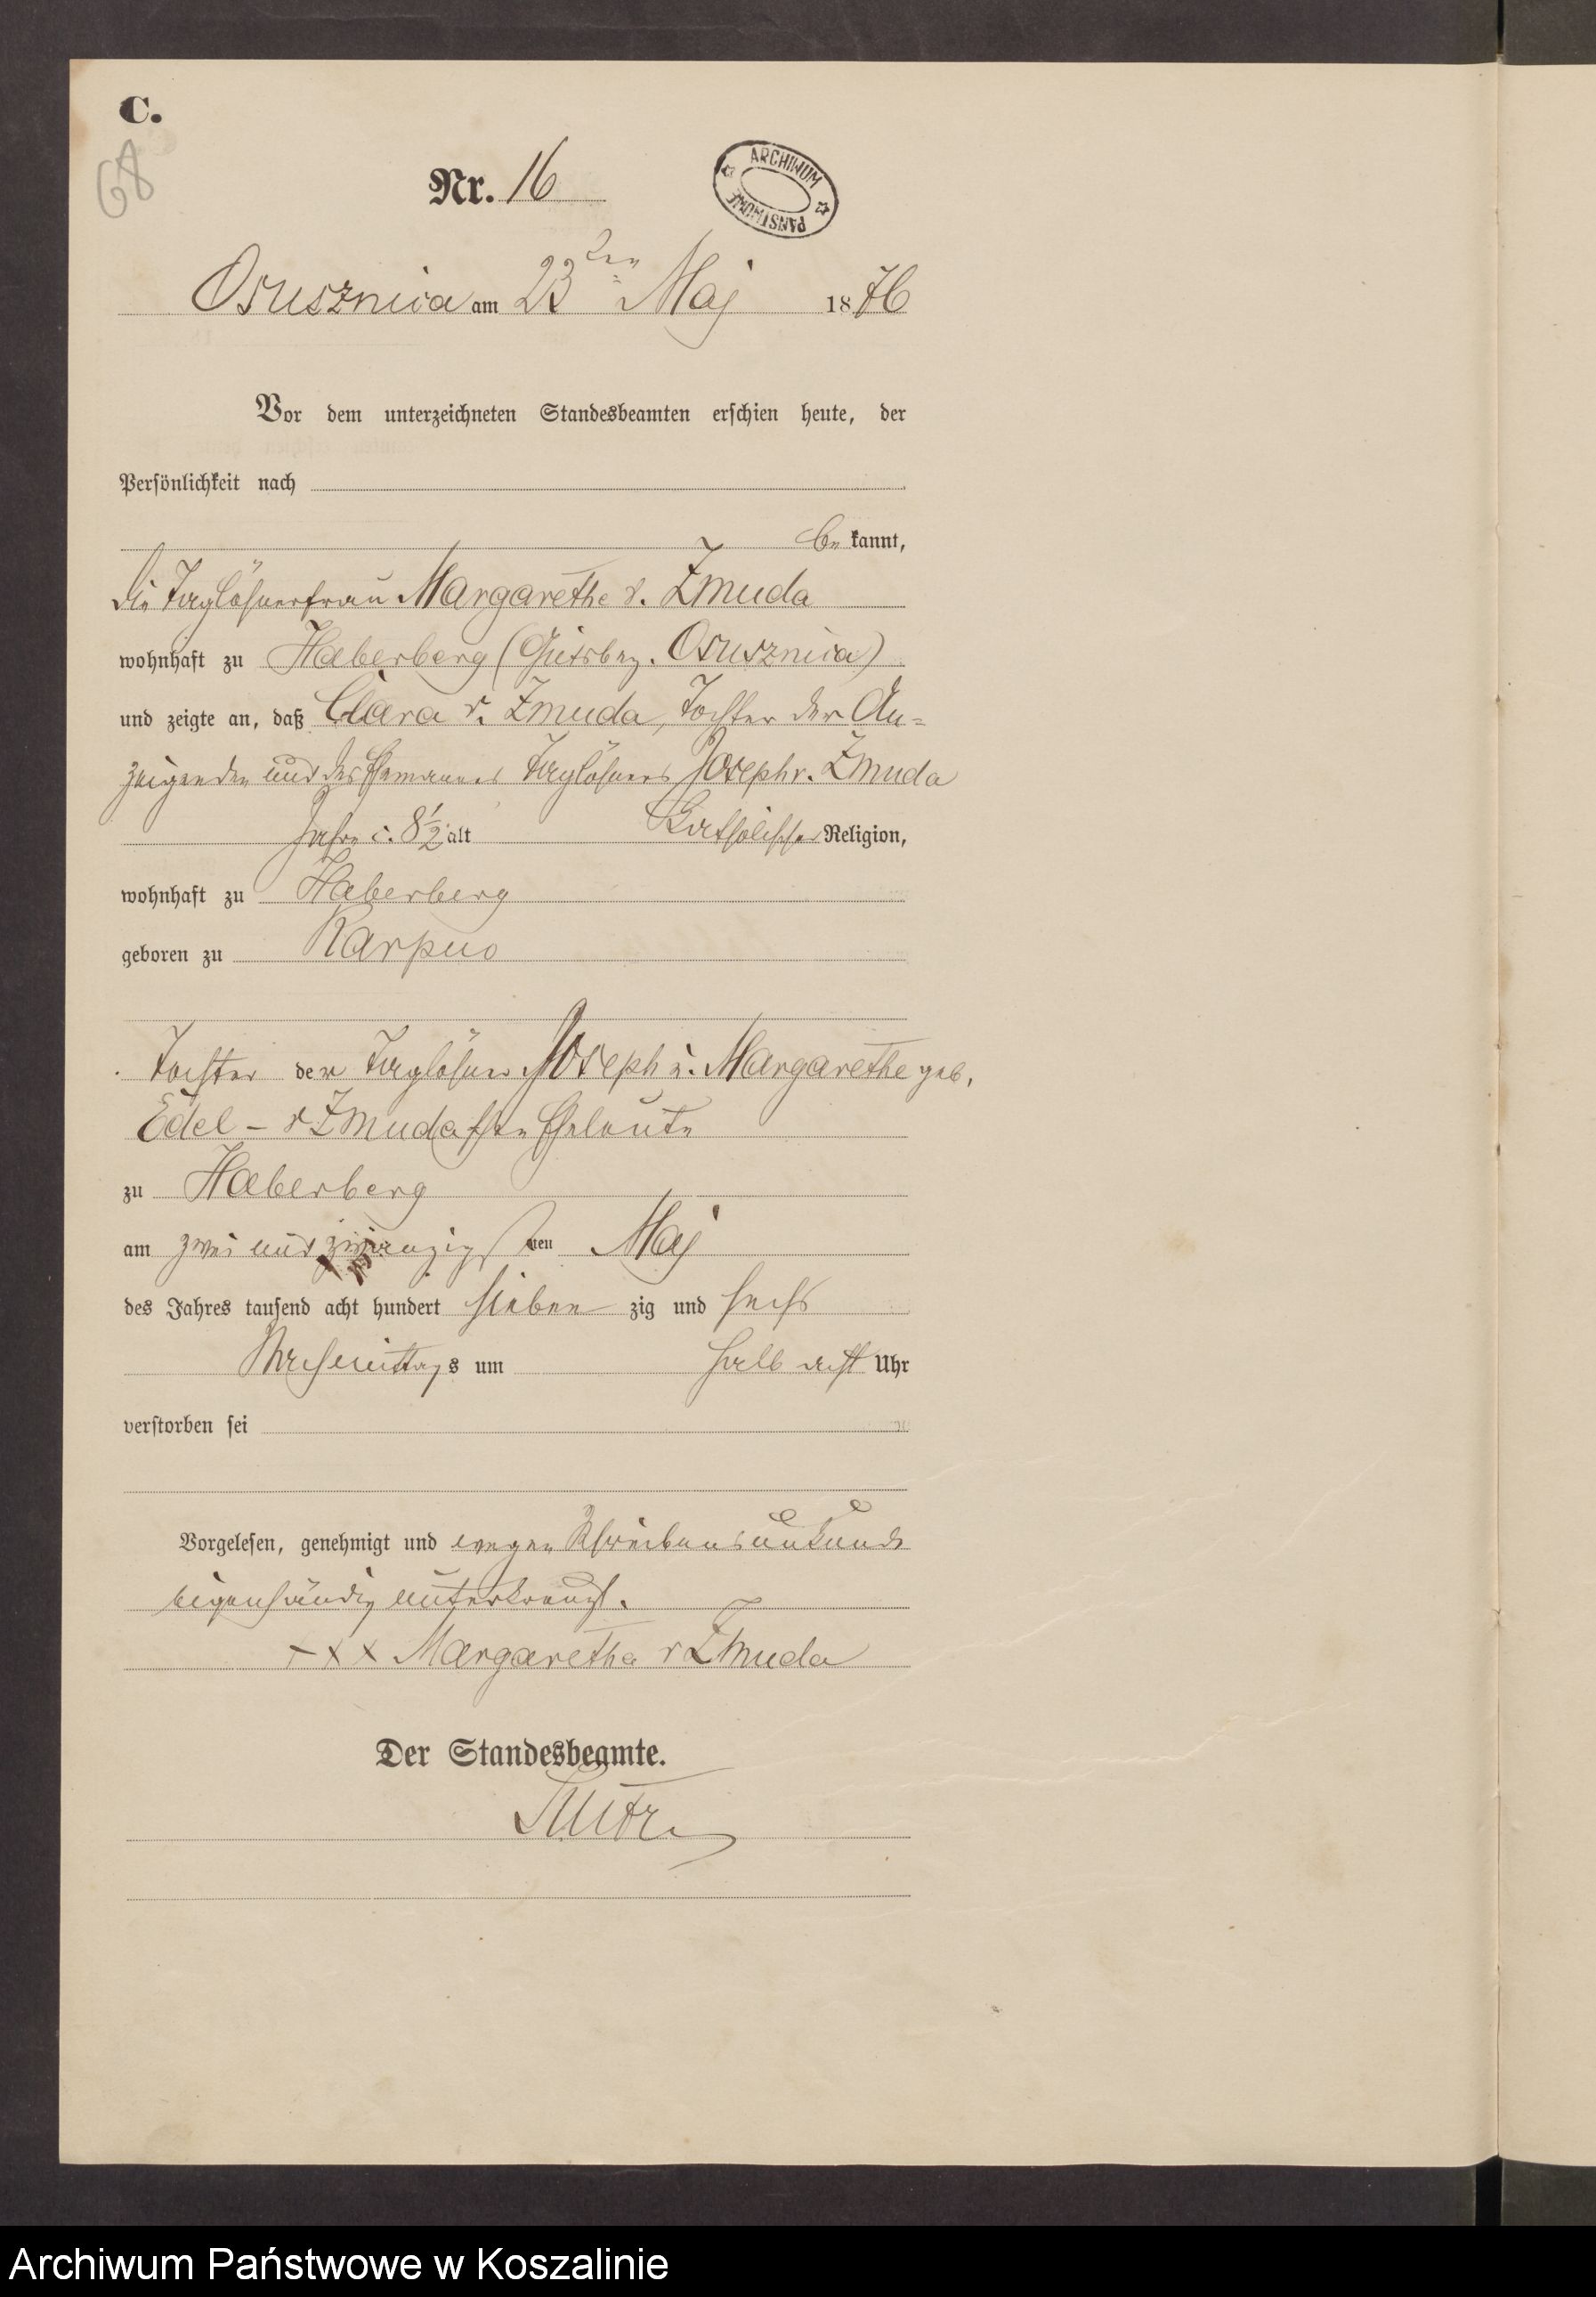 C.
68
Nr. 16
ARCHIWUM PAŃSTWOWE
Osusznica am 23ten Maj 1876
Vor dem unterzeichneten Standesbeamten erschien heute, der
Persönlichkeit nach
be kannt,
die Taglöhnerfrau Margarethe v. Zmuda
wohnhaft zu Haberberg (Gutsbez. Osusznica)
und zeigte an, daß Clara v. Zmuda, Tochter der An-
zeigenden und des Ehemannes Taglöhners Joseph v. Zmuda
Jahre c. 8 1/2 alt Katholischer Religion,
wohnhaft zu Haberberg
geboren zu Karpno
Tochter der Taglöhner Joseph u. Margarethe geb.
Edel - v Zmudaschen Eheleute
zu Haberberg
am zwei und zwanzigsten Maj
des Jahres tausend acht hundert sieben zig und sechs
Nachmittags um halb acht Uhr
verstorben sei
Vorgelesen, genehmigt und wegen Schreibensunkunde
eigenhändig unterkreuzt.
+ x x Margaretha v Zmuda
Der Standesbeamte.
Archiwum Państwowe w Koszalinie